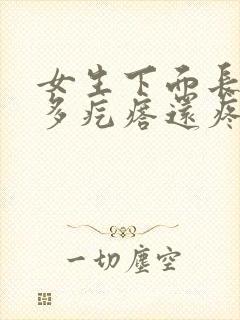 女生下面長
多疙瘩還疼
一切塵空